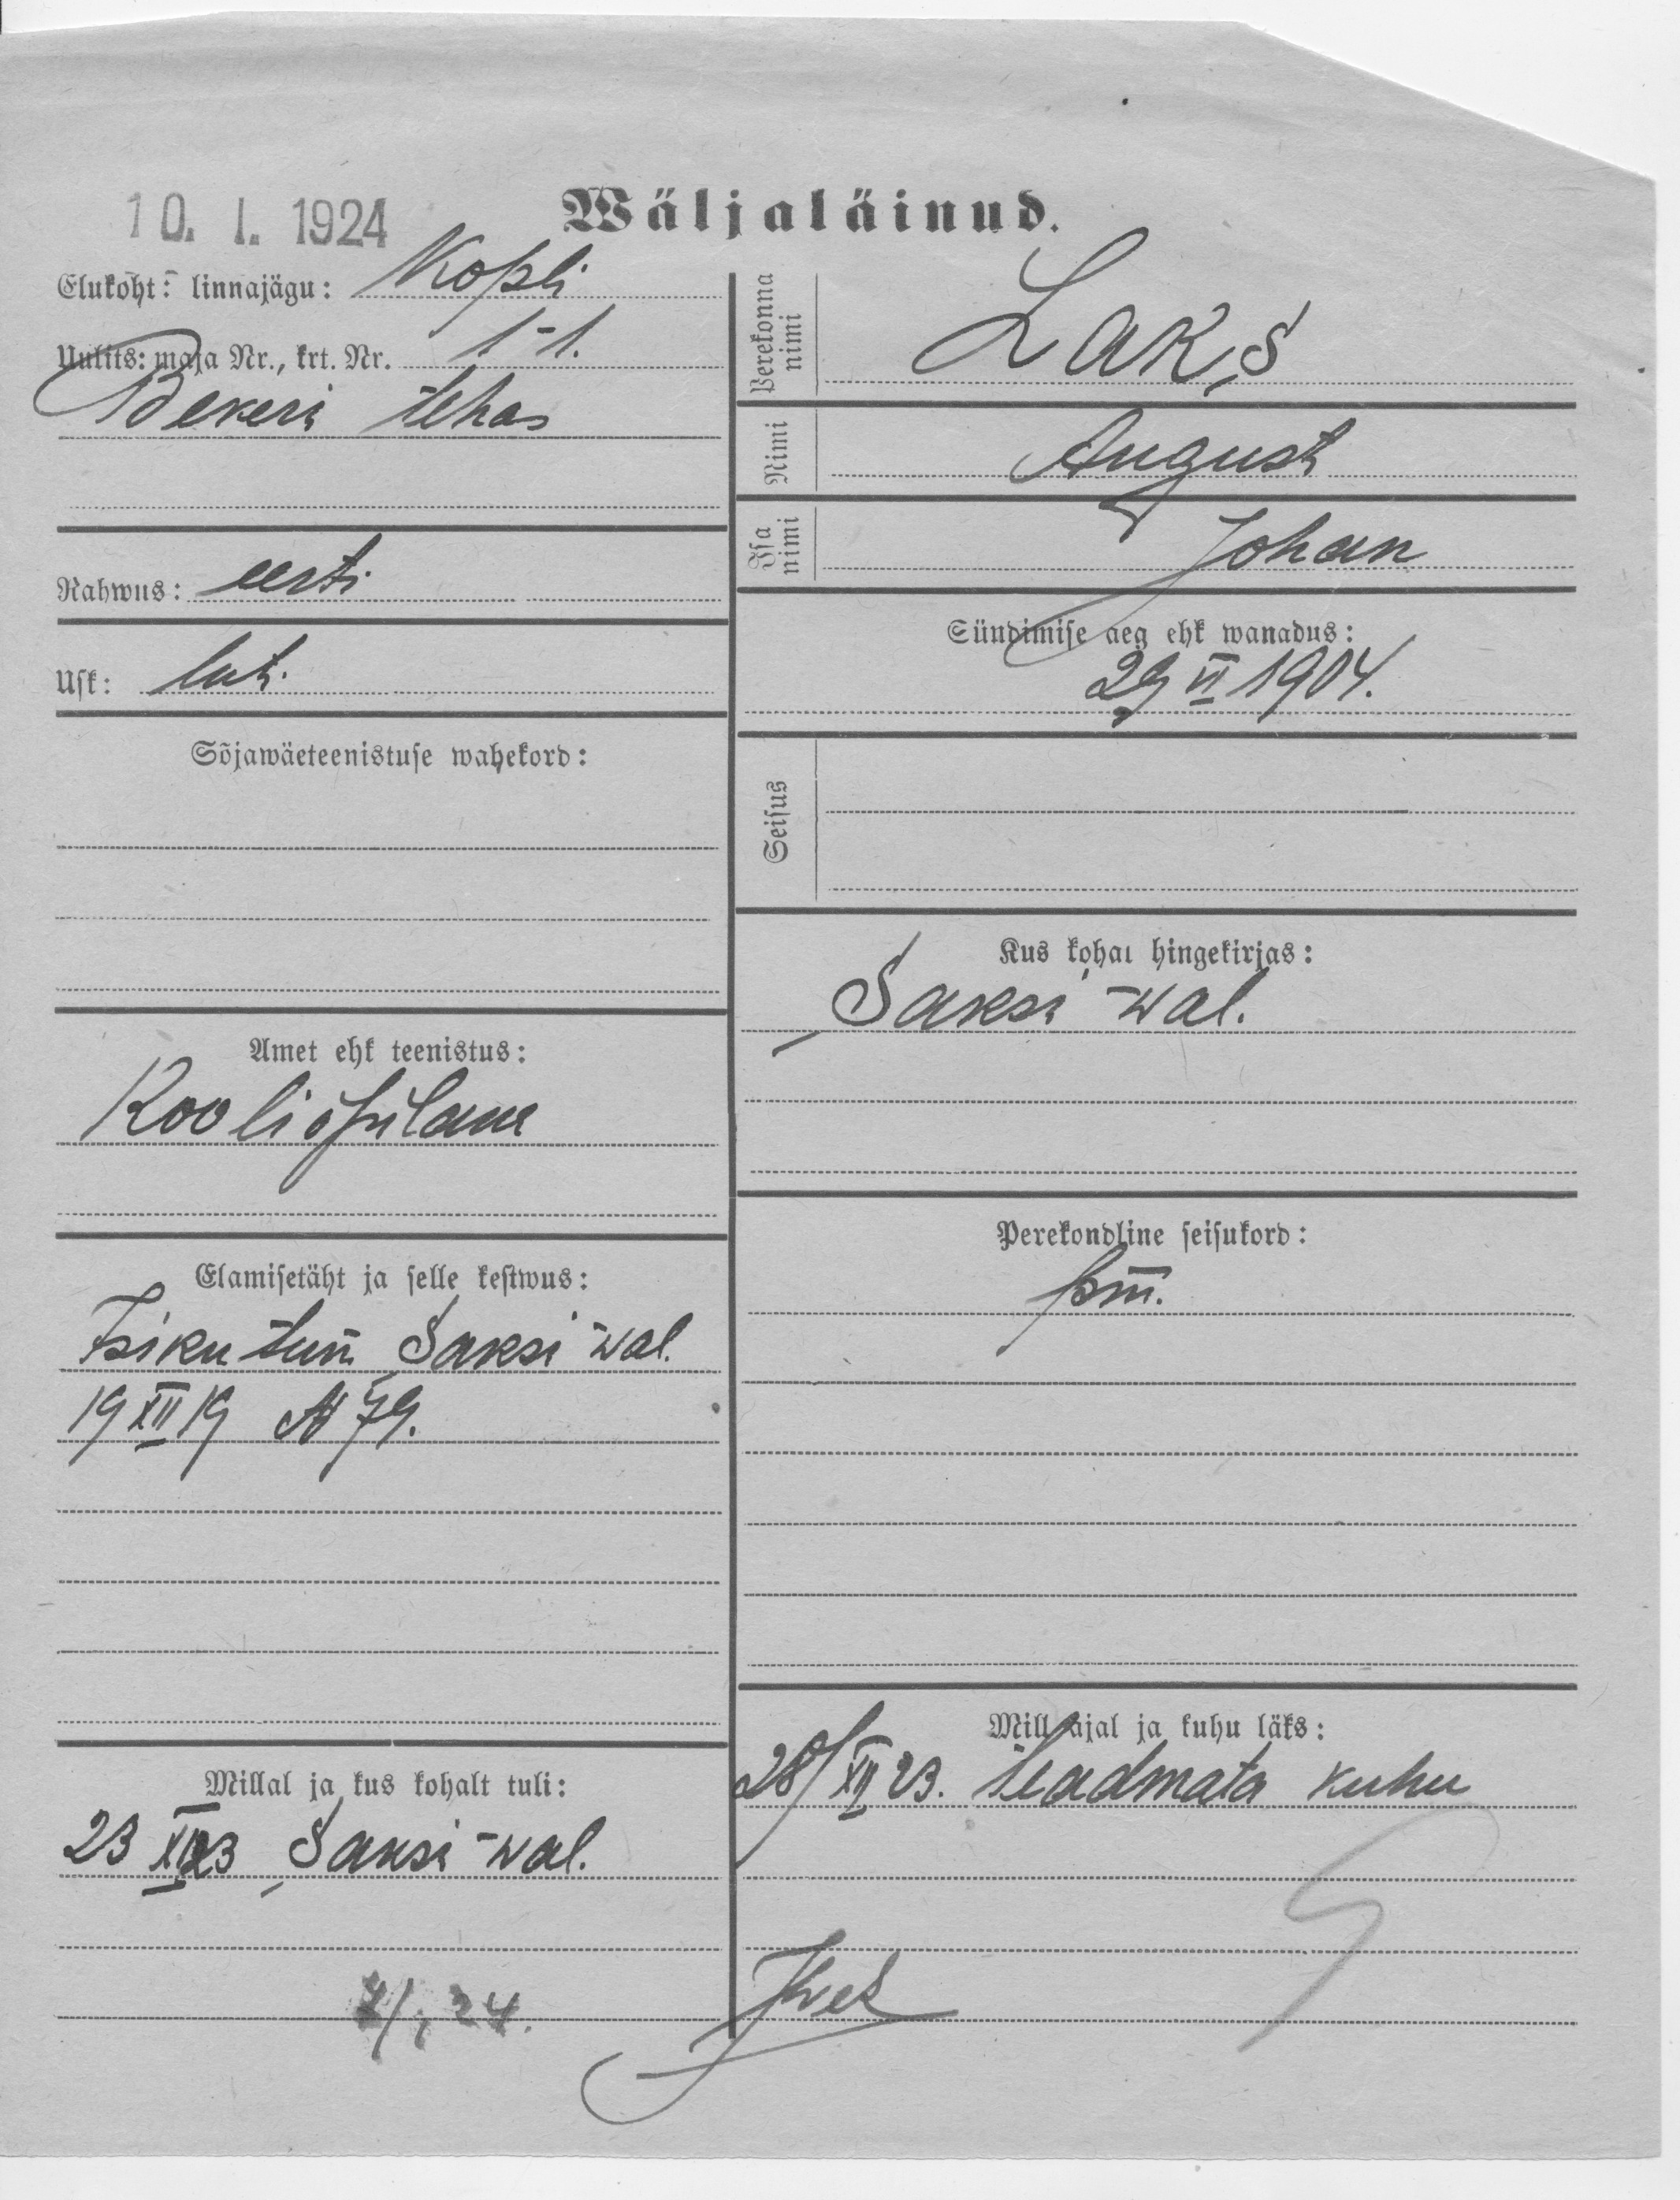 10. I. 1924
Wäljaläinud.
Elukoht: linnajagu: Kopli
Uulits: maja Nr., krt. Nr. 1-1.
Bekeri tehas
Rahwus: eesti
Usk: lut.
Sõjawäeteenistuse wahekord:
Amet ehk teenistus:
Kooliõpilane
Elamisetäht ja selle kestwus:
Isiku tun. Saksi wal.
19 XII 19 № 79.
Millal ja kus kohalt tuli:
23 XII 23 Saksi wal.
7/I 24.
Perekonna nimi
Laks
Nimi
August
Isa nimi
Johan
Sündimise aeg ehk wanadus:
29 VI 1904.
Seisus
Kus kohal hingekirjas:
Saksi wal.
Perekondline seisukord:
pm.
Mill ajal ja kuhu läks:
28/XII 23. teadmata kuhu